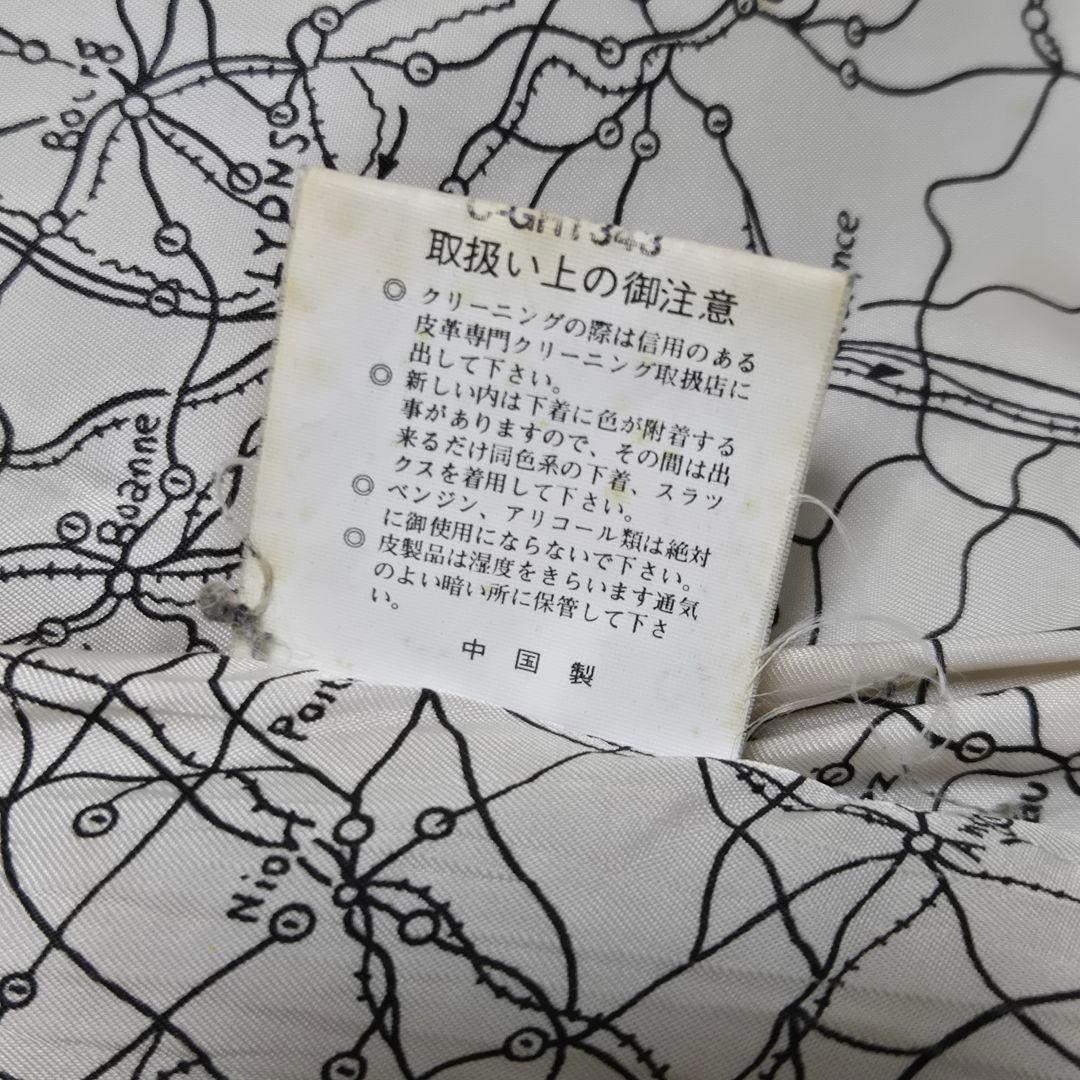 Bourg
LYONS
Roanne
343
取扱い上の御注意
◎ クリーニングの際は信用のある
皮革専門クリーニング取扱店に
出して下さい。
◎ 新しい内は下着に色が附着する
事がありますので、その間は出
来るだけ同色系の下着、スラッ
クスを着用して下さい。
◎ ベンジン、アリコール類は絶対
に御使用にならないで下さい。
◎ 皮製品は湿度をきらいます通気
のよい暗い所に保管して下さ
い。
中国製